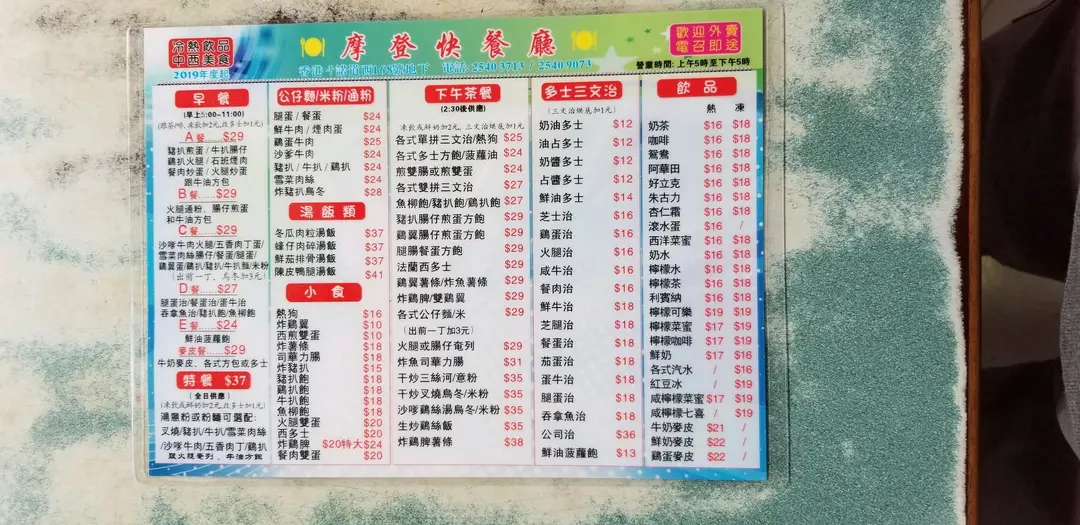 冷熱飲品
中西美食
2019年度起
摩登快餐廳
香港 干諾道西168號地下 電話: 2540 3713 / 2540 9073
歡迎外賣
電召即送
營業時間: 上午5時至下午5時
早餐
(早上5:00-11:00)
A餐......$29
豬扒煎蛋 / 牛扒腸仔
鷄扒火腿 / 石班煙肉
餐肉炒蛋 / 火腿炒蛋
跟牛油方包
B餐......$29
火腿通粉、腸仔煎蛋
和牛油方包
C餐......$29
沙爹牛肉火腿/五香肉丁蛋/
雪菜肉絲腸仔/餐蛋/腿蛋/
鷄翼蛋/鷄扒/豬扒/牛扒麵/米粉
(出前一丁、烏冬加3元)
D餐......$27
腿蛋治/餐蛋治/蛋牛治
吞拿魚治/豬扒飽/魚柳飽
E餐......$24
鮮油菠蘿飽
麥皮餐......$29
牛奶麥皮、各式方包或多士
特餐 $37
(全日供應)
(凍飲或鮮奶加2元,改多士加1元)
湯意粉或粉麵可選配:
叉燒/豬扒/牛扒/雪菜肉絲
/沙爹牛肉/五香肉丁/鷄扒
公仔麵/米粉/通粉
腿蛋 / 餐蛋 $24
鮮牛肉 / 煙肉蛋 $24
鷄蛋牛肉 $25
沙爹牛肉 $24
豬扒 / 牛扒 / 鷄扒 $24
雪菜肉絲 $24
炸豬扒烏冬 $28
湯飯類
冬瓜肉粒湯飯 $37
蠔仔肉碎湯飯 $37
鮮茄排骨湯飯 $37
陳皮鴨腿湯飯 $41
小食
熱狗 $16
炸鷄翼 $10
西煎雙蛋 $10
炸薯條 $18
司華力腸 $18
炸豬扒 $15
豬扒飽 $18
鷄扒飽 $18
牛扒飽 $18
魚柳飽 $18
火腿雙蛋 $20
西多士 $20
炸鷄脾 $20特大$24
餐肉雙蛋 $20
下午茶餐
(2:30後供應)
凍飲或鮮奶加2元, 三文治烘底加1元
各式單拼三文治/熱狗 $25
各式多士方飽/菠蘿油 $24
煎雙腸或煎雙蛋 $24
各式雙拼三文治 $27
魚柳飽/豬扒飽/鷄扒飽 $27
豬扒腸仔煎蛋方飽 $29
鷄翼腸仔煎蛋方飽 $29
腿腸餐蛋方飽 $29
法蘭西多士 $29
鷄翼薯條/炸魚薯條 $29
炸鷄脾/雙鷄翼 $29
各式公仔麵/米 $29
(出前一丁加3元)
火腿或腸仔奄列 $29
炸魚司華力腸 $31
干炒三絲河/意粉 $35
干炒叉燒烏冬/米粉 $35
沙爹鷄絲湯烏冬/米粉 $35
生炒鷄絲飯 $35
炸鷄脾薯條 $38
多士三文治
(三文治烘底加1元)
奶油多士 $12
油占多士 $12
奶醬多士 $12
占醬多士 $12
鮮油多士 $14
芝士治 $18
鷄蛋治 $18
火腿治 $18
咸牛治 $18
餐肉治 $18
鮮牛治 $18
芝腿治 $18
餐蛋治 $18
茄蛋治 $18
蛋牛治 $18
腿蛋治 $18
吞拿魚治 $18
公司治 $36
鮮油菠蘿飽 $13
飲品
熱 凍
奶茶 $16 $18
咖啡 $16 $18
鴛鴦 $16 $18
阿華田 $16 $18
好立克 $16 $18
朱古力 $16 $18
杏仁霜 $16 $18
滾水蛋 $16 /
西洋菜蜜 $16 $18
奶水 $16 $18
檸檬水 $16 $18
檸檬茶 $16 $18
利賓納 $16 $18
檸檬可樂 $19 $19
檸檬菜蜜 $17 $19
檸檬咖啡 $17 $19
鮮奶 $17 $16
各式汽水 / $16
紅豆冰 / $19
咸檸檬菜蜜 $17 $19
咸檸檬七喜 / $19
牛奶麥皮 $21 /
鮮奶麥皮 $22 /
鷄蛋麥皮 $22 /